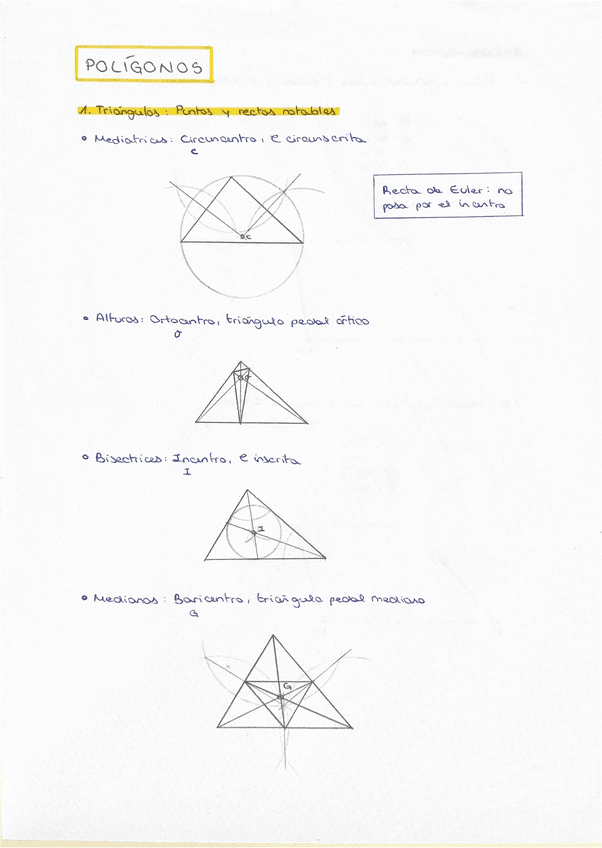 POLÍGONOS
1. Triángulos: Puntos y rectas notables
Mediatrices: Circuncentro, C circunscrita
C
Recta de Euler: no
pasa por el incentro
C
Alturas: Ortocentro, triángulo pedal órtico
O
O
Bisectrices: Incentro, C inscrita
I
I
Medianas: Baricentro, triángulo pedal mediano
G
G